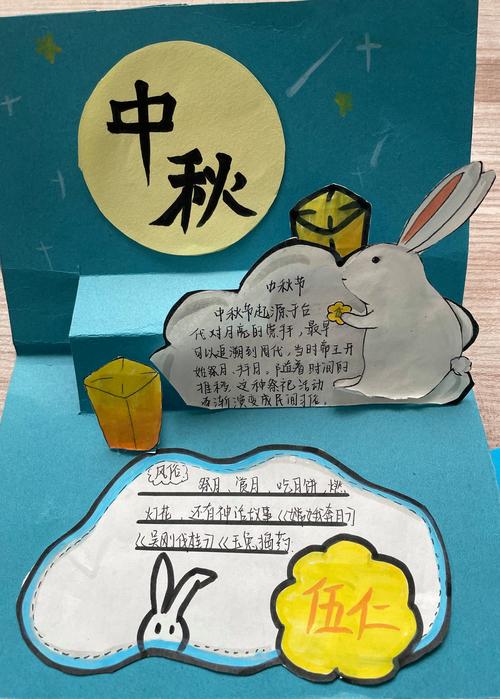 中秋
中秋节
中秋节起源于古
代对月亮的崇拜,最早
可以追溯到周代,当时帝王开
始祭月、拜日。随着时间的
推移,这种祭祀活动
逐渐演变成民间习俗。
风俗
祭月、赏月、吃月饼、燃
灯花,还有神话故事《嫦娥奔月》
《吴刚伐桂》《玉兔捣药》
伍仁